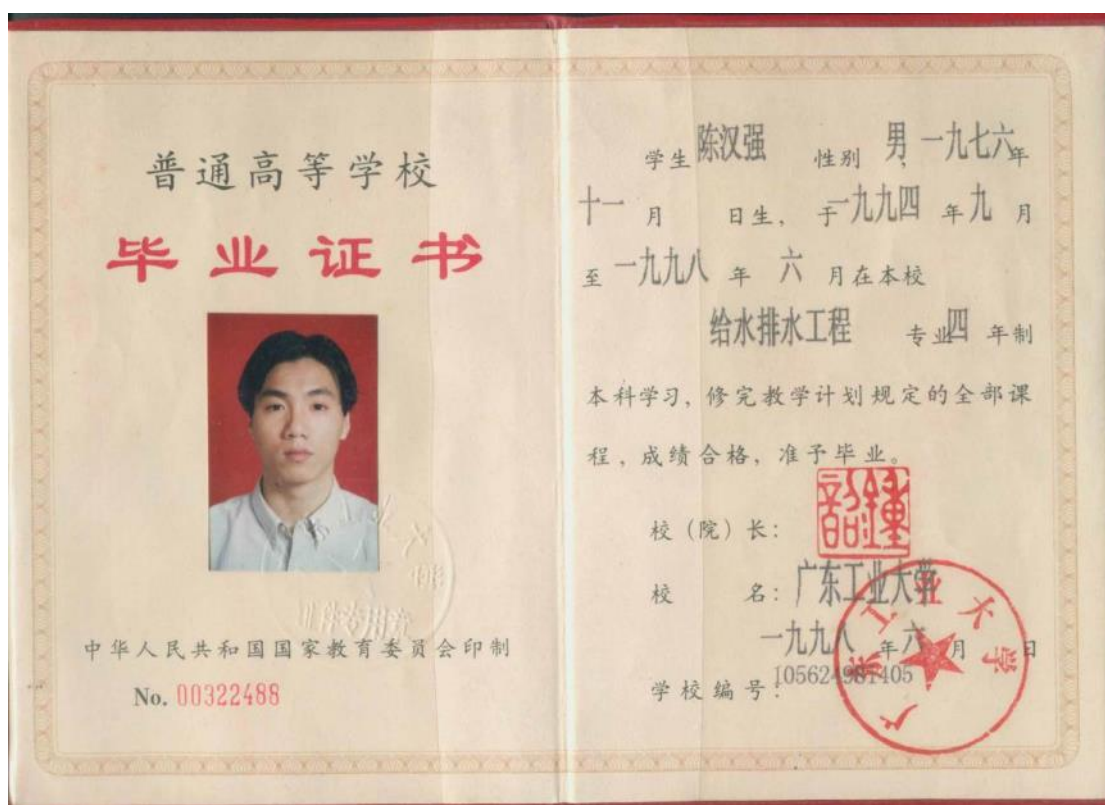 普通高等学校
毕业证书
中华人民共和国国家教育委员会印制
No. 00322488
学生 陈汉强 性别 男, 一九七六年
十一 月 日生, 于一九九四 年九 月
至 一九九八 年 六 月在本校
给水排水工程 专业四 年制
本科学习, 修完教学计划规定的全部课
程, 成绩合格, 准予毕业。
校 (院) 长:
校 名: 广东工业大学
一九九八 年六 月 日
学校编号: 105624981405
广东工业大学